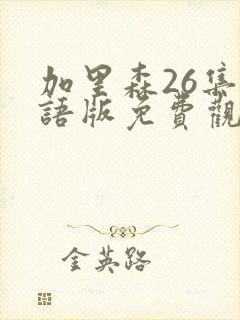 加里森26集
語版免費觀
金英路